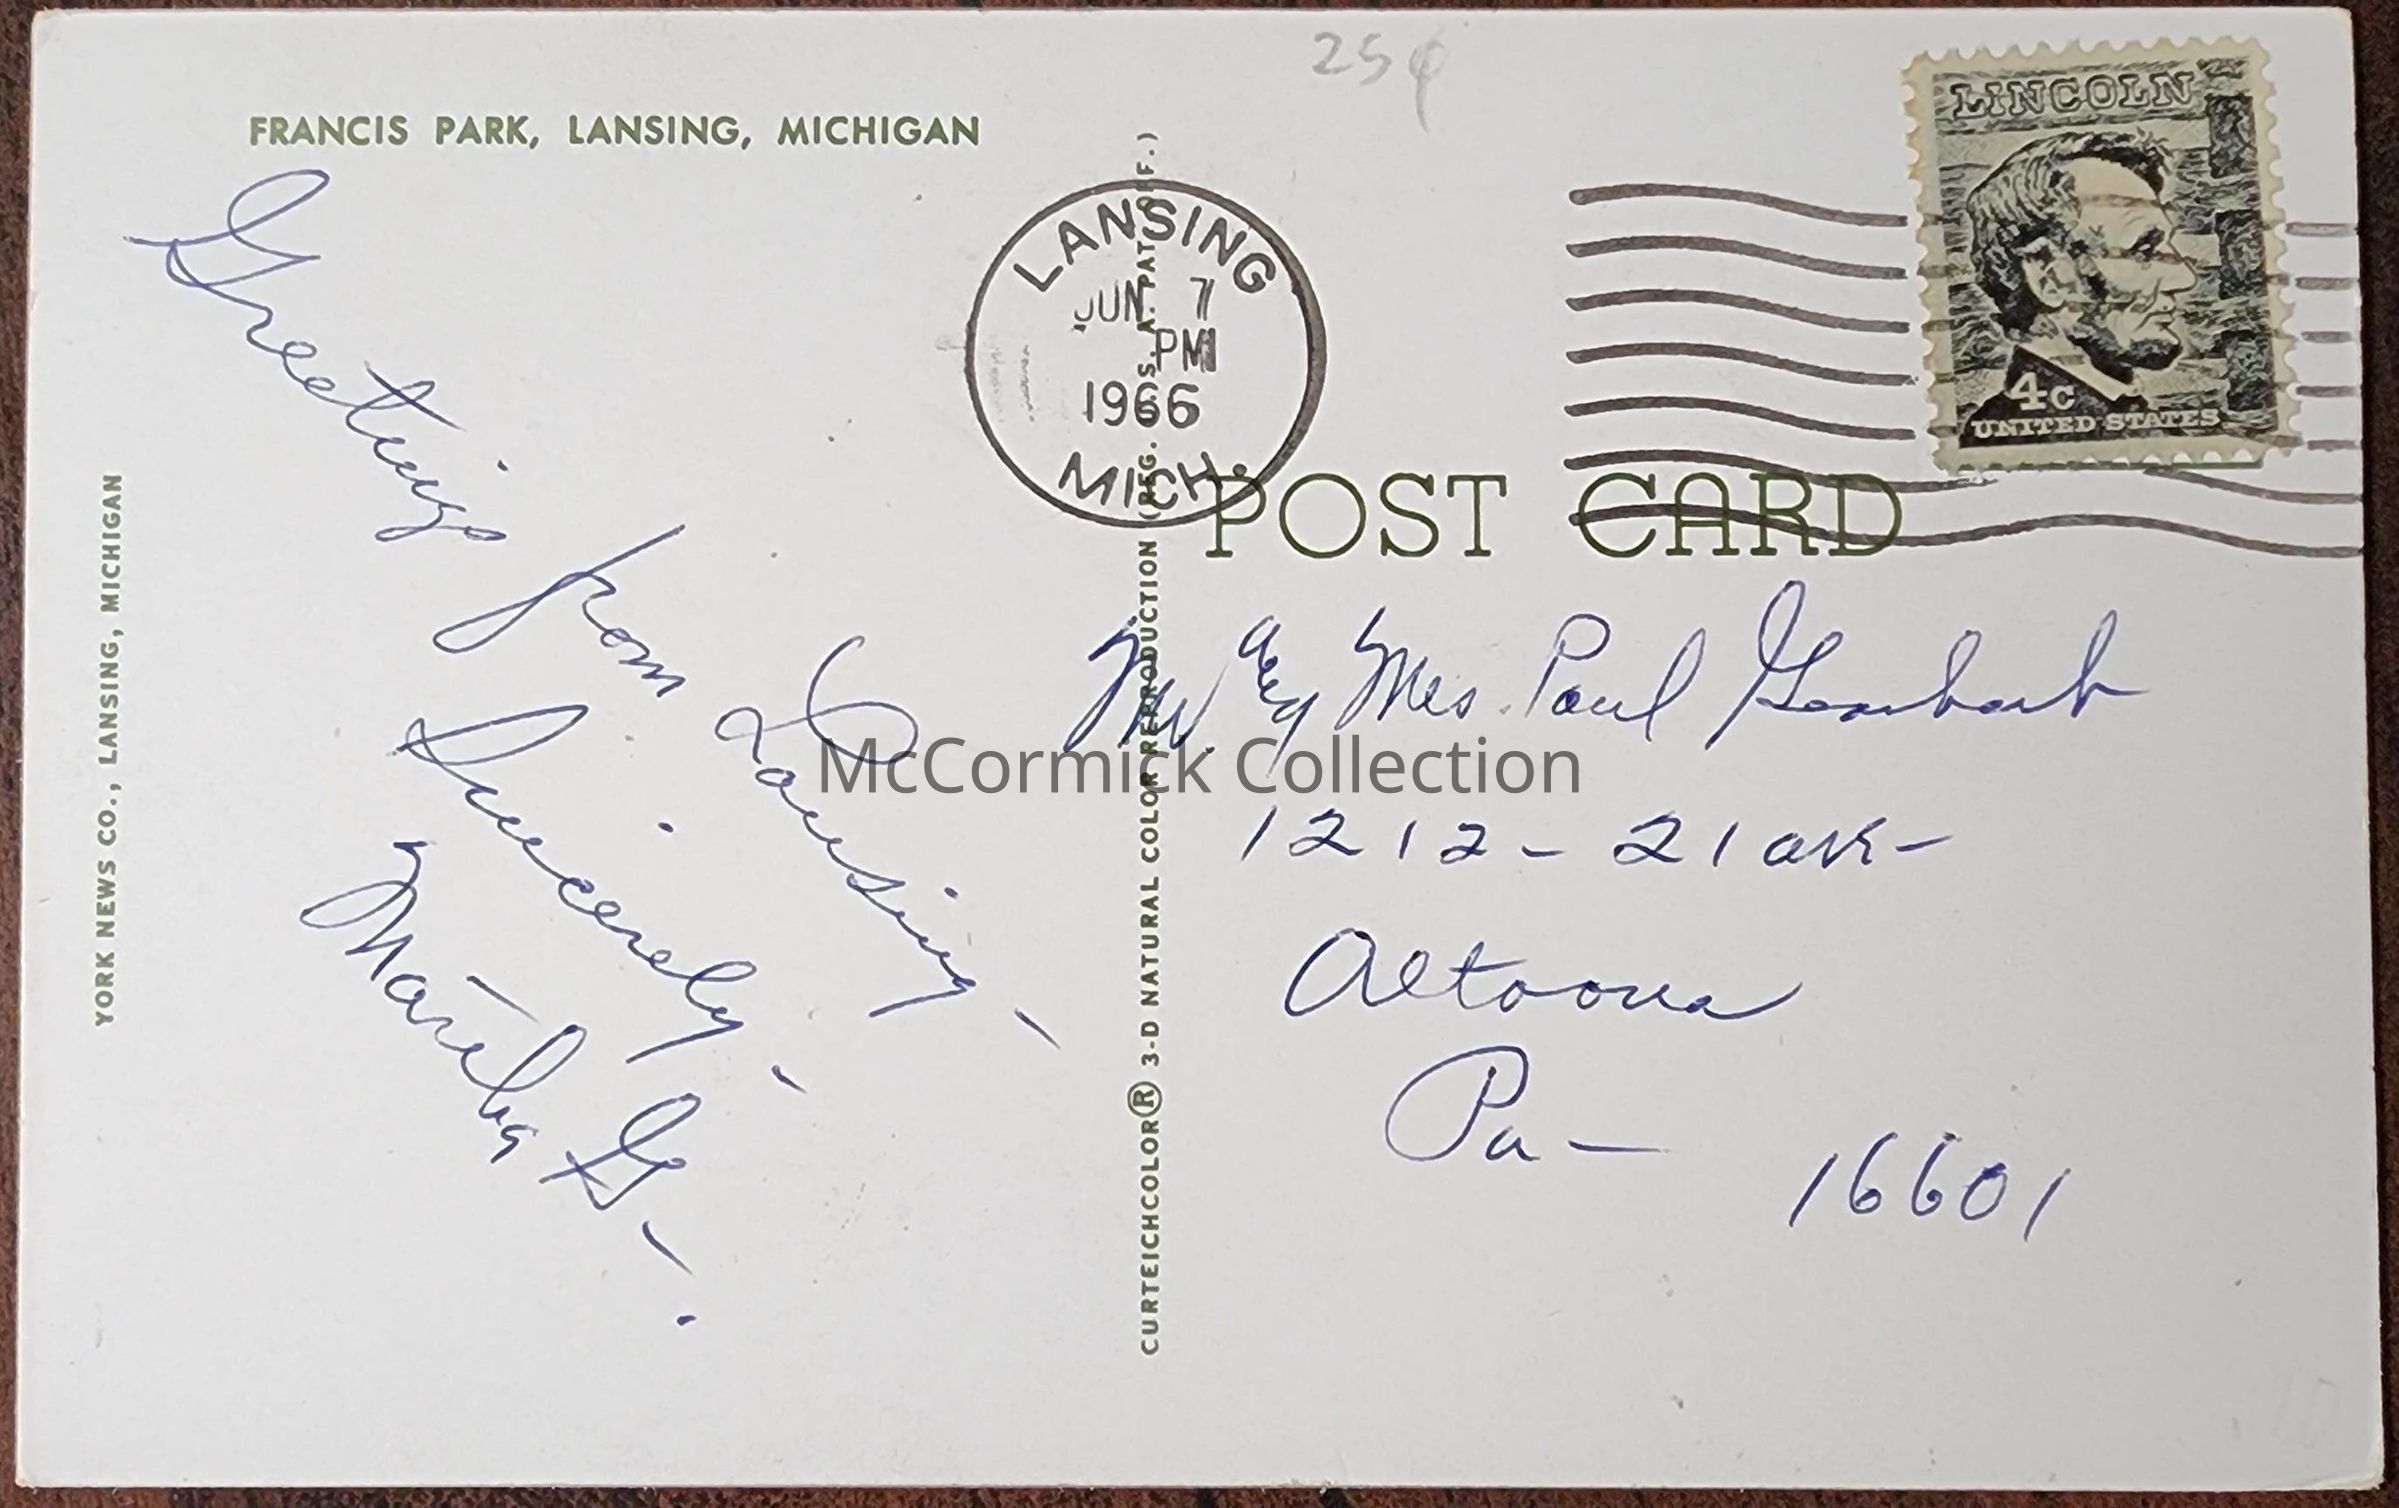 25¢
LINCOLN
4c
UNITED STATES
FRANCIS PARK, LANSING, MICHIGAN
LANSING
JUN 7
PM
1966
MICH.
POST CARD
Greetings
from
Lansing –
Sincerely –
Martha G –.
YORK NEWS CO., LANSING, MICHIGAN
CURTEICHCOLOR® 3-D NATURAL COLOR REPRODUCTION (REG. U.S.A. PAT. OFF.)
Mr. Mrs. Paul
1212 – 21 ave –
Altoona
Pa –
16601
McCormick Collection